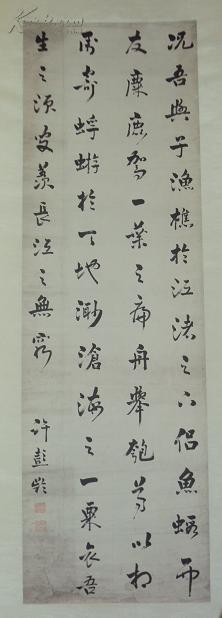 况吾與子漁樵於江渚之下侶魚蝦而
友麋鹿駕一葉之扁舟舉匏尊以相
屬寄蜉蝣於天地渺滄海之一粟哀吾
生之須臾羨長江之無窮
許彭齡